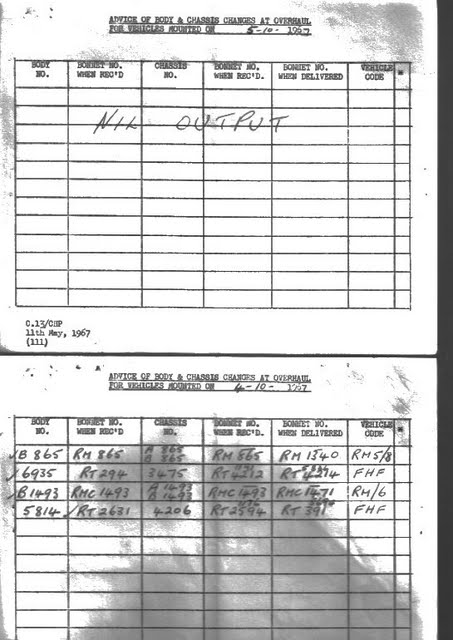 ADVICE OF BODY & CHASSIS CHANGES AT OVERHAUL
FOR VEHICLES MOUNTED ON 5-10- 1967
BODY NO. BONNET NO. WHEN REC'D. CHASSIS NO. BONNET NO. WHEN REC'D. BONNET NO. WHEN DELIVERED VEHICLE CODE *
NIL OUTPUT
C.13/CHP
11th May, 1967
(111)
ADVICE OF BODY & CHASSIS CHANGES AT OVERHAUL
FOR VEHICLES MOUNTED ON 4-10- 1967
BODY NO. BONNET NO. WHEN REC'D CHASSIS NO. BONNET NO. WHEN REC'D. BONNET NO. WHEN DELIVERED VEHICLE CODE *
B 865 RM 865 A 865 B 865 RM 865 RM 1340 RM5/8
6935 RT 294 3475 RT 4212 RT 4214 FHF
B1493 RMC 1493 A 1493 B 1493 RMC 1493 RMC 1471 RM/6
5814 RT 2631 4206 RT 2594 RT 391 FHF